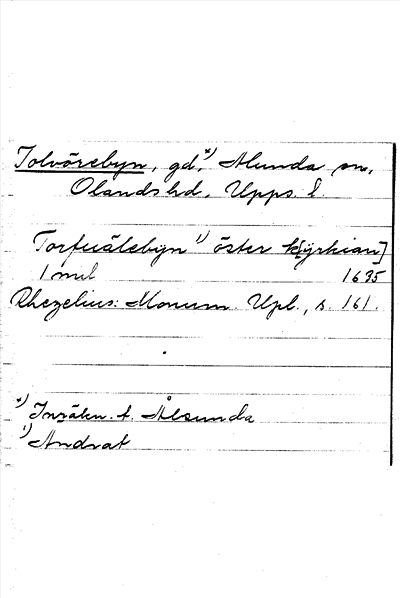 Tolvörebyn, gd,*) Alunda sn,
Olands hd, Upps. l.
Torfuälebyn 1) öster k[yrkian]
1 mil 1635
Rhezelius: Monum. Upl., s. 161.
*) Inräkn. t. Ålsunda
1) Ändrat